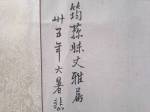 筠蓀妹丈雅屬
卅五年大暑悲